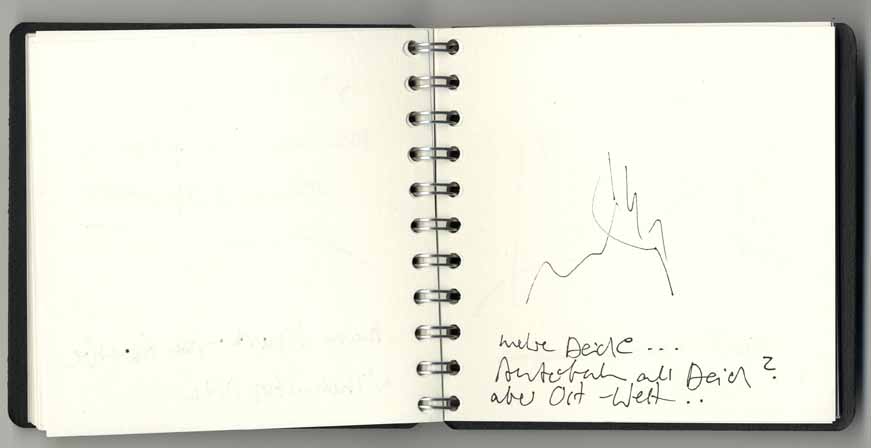 mehr Deiche ...
Autobahn als Deich?
aber Ost-West ..